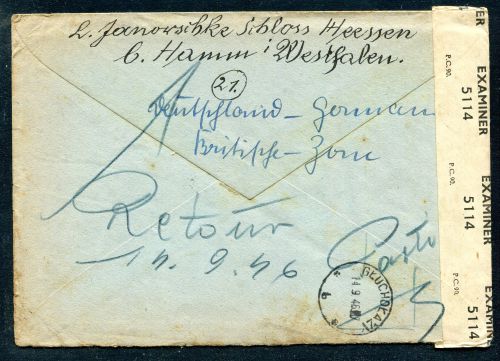 L. Janorschke Schloss Heessen
b. Hamm i Westfalen.
21.
Deutschland - German
Britische - Zone
Retour
14.9.46
GŁUCHOŁAZY
14.9.46
b
P.C. 90.
EXAMINER
5114
P.C. 90.
EXAMINER
5114
P.C. 90.
EXAMINER
5114